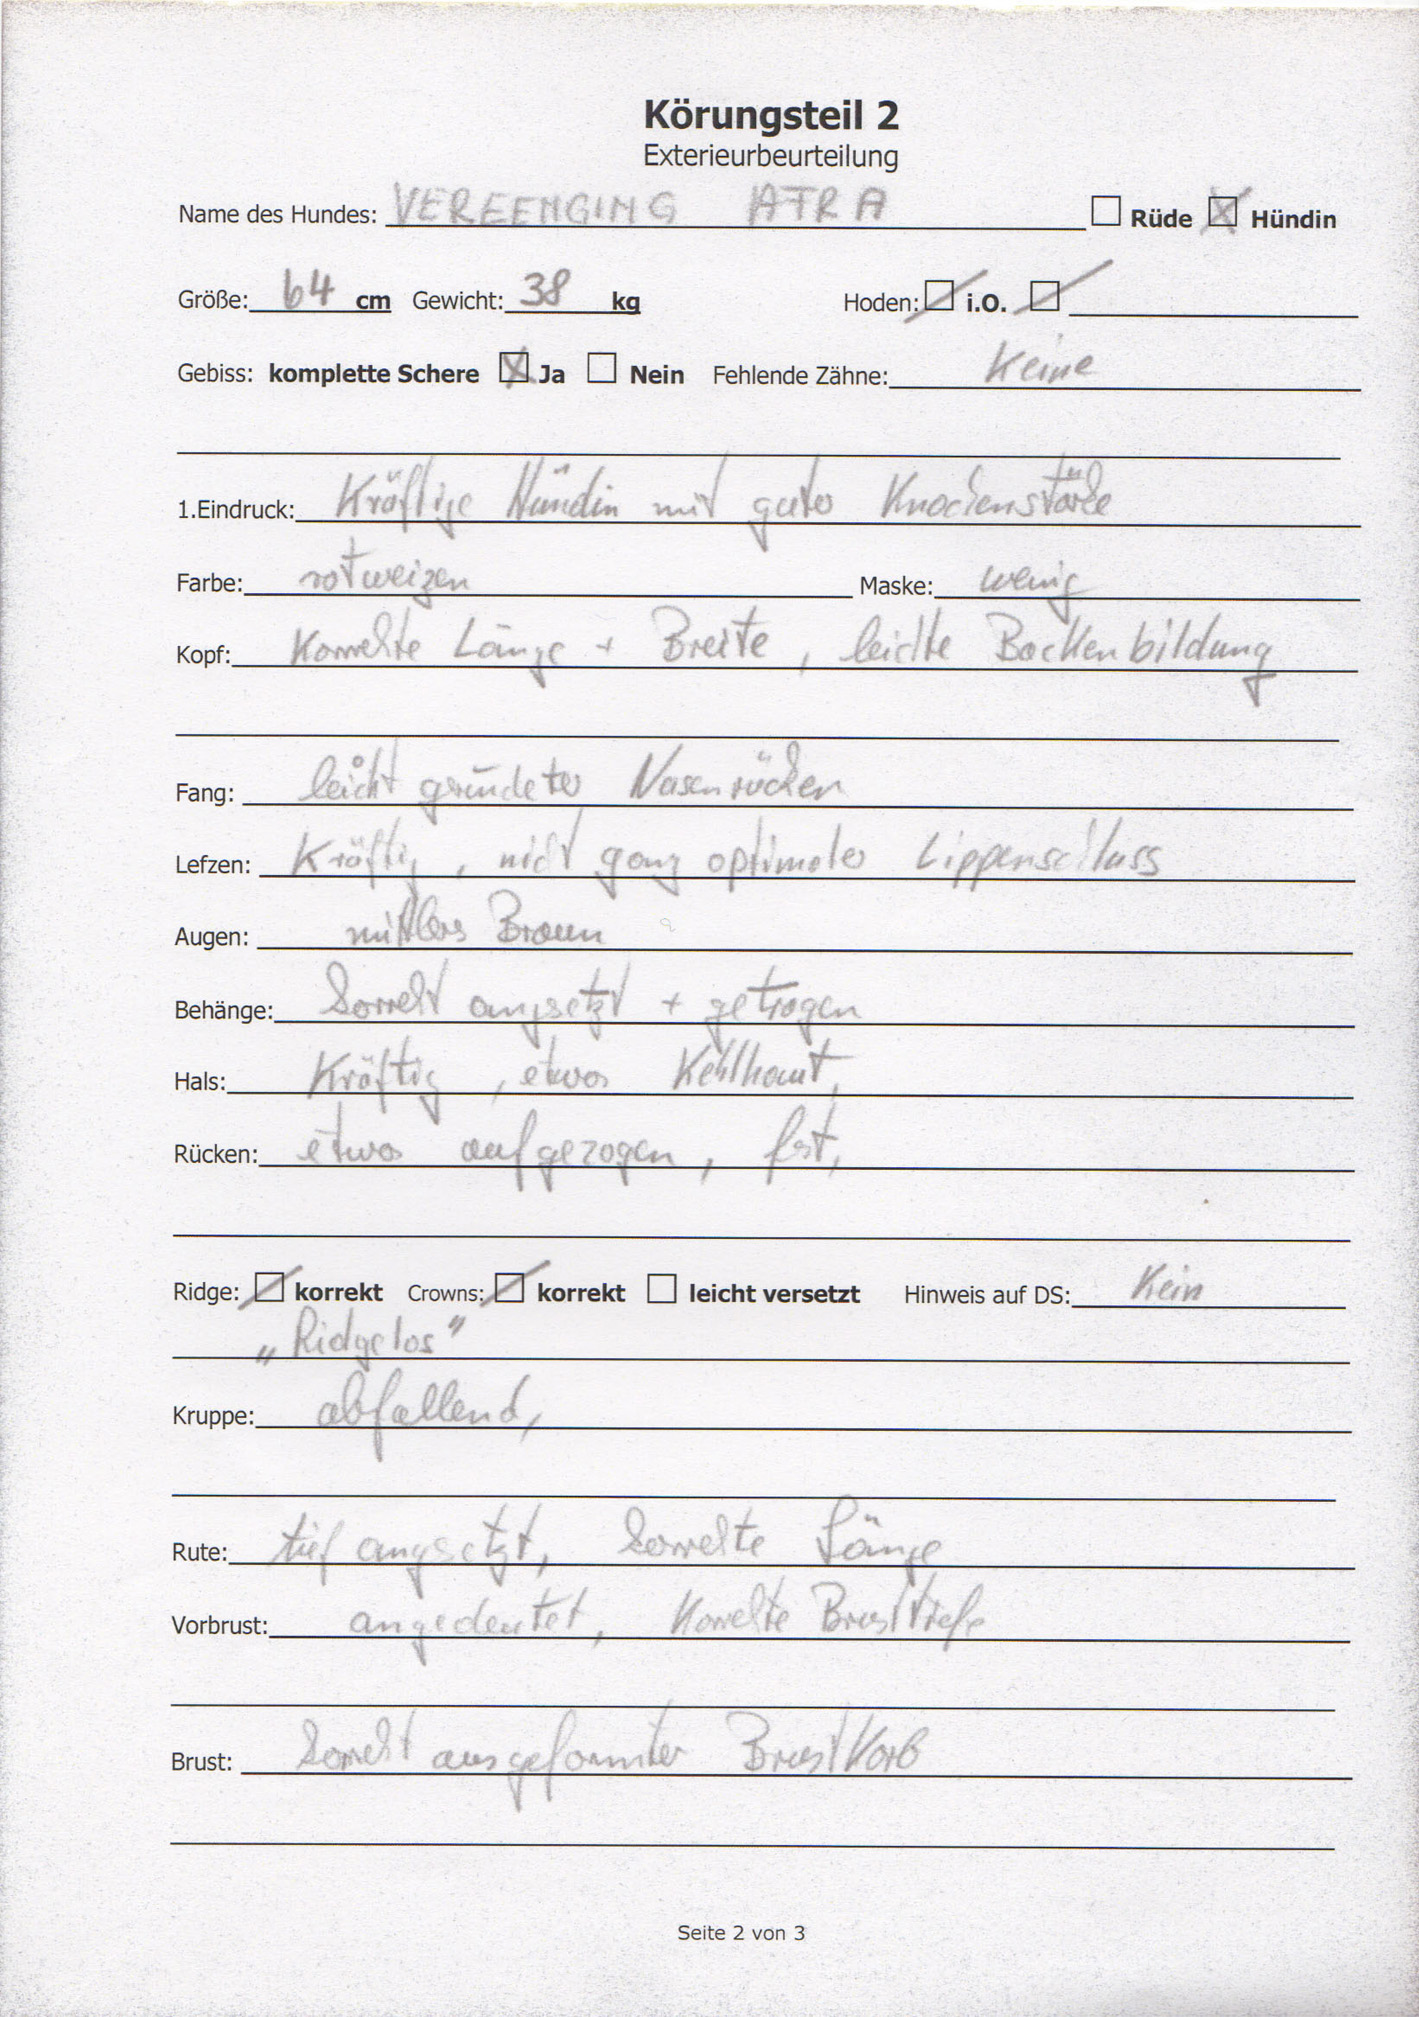 Körungsteil 2
Exterieurbeurteilung
Name des Hundes: VEREENGING ATRA Rüde Hündin
Größe: 64 cm Gewicht: 38 kg Hoden: i.O.
Gebiss: komplette Schere Ja Nein Fehlende Zähne: Keine
1.Eindruck: Kräftige Hündin mit guter Knochenstärke
Farbe: rotweizen Maske: wenig
Kopf: Korrekte Länge + Breite, leichte Backenbildung
Fang: leicht Nasenrücken
Lefzen: Kräftig, nicht ganz optimaler Lippenschluss
Augen: mittleres Braun
Behänge: korrekt angesetzt + getragen
Hals: Kräftig, etwas Kehlhaut,
Rücken: etwas aufgezogen, fest,
Ridge: korrekt Crowns: korrekt leicht versetzt Hinweis auf DS: Kein
„Ridgelos"
Kruppe: abfallend,
Rute: tief angesetzt, korrekte Länge
Vorbrust: angedeutet, Korrekte Brusttiefe
Brust: korrekt ausgeformter BrustKorb
Seite 2 von 3